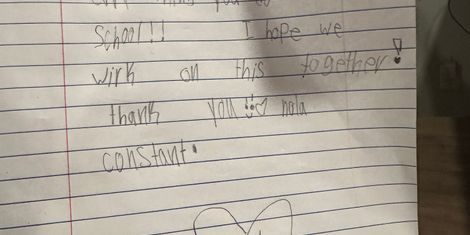 School!! I hope we
wirk on this together!
thank you nola
constant.